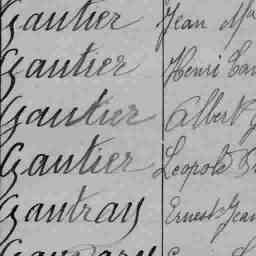 Gautier Jean Ma
Gautier Henri
Gautier Albert
Gautier Léopold
Gautray Ernest Jean